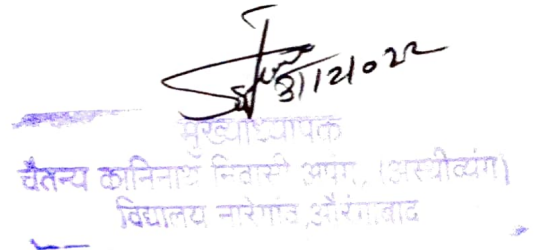 3/12/022
मुख्याध्यापक
चैतन्य कानिनाथ निवासी अपंग, (अस्थीव्यंग)
विद्यालय नारेगांव,औरंगाबाद